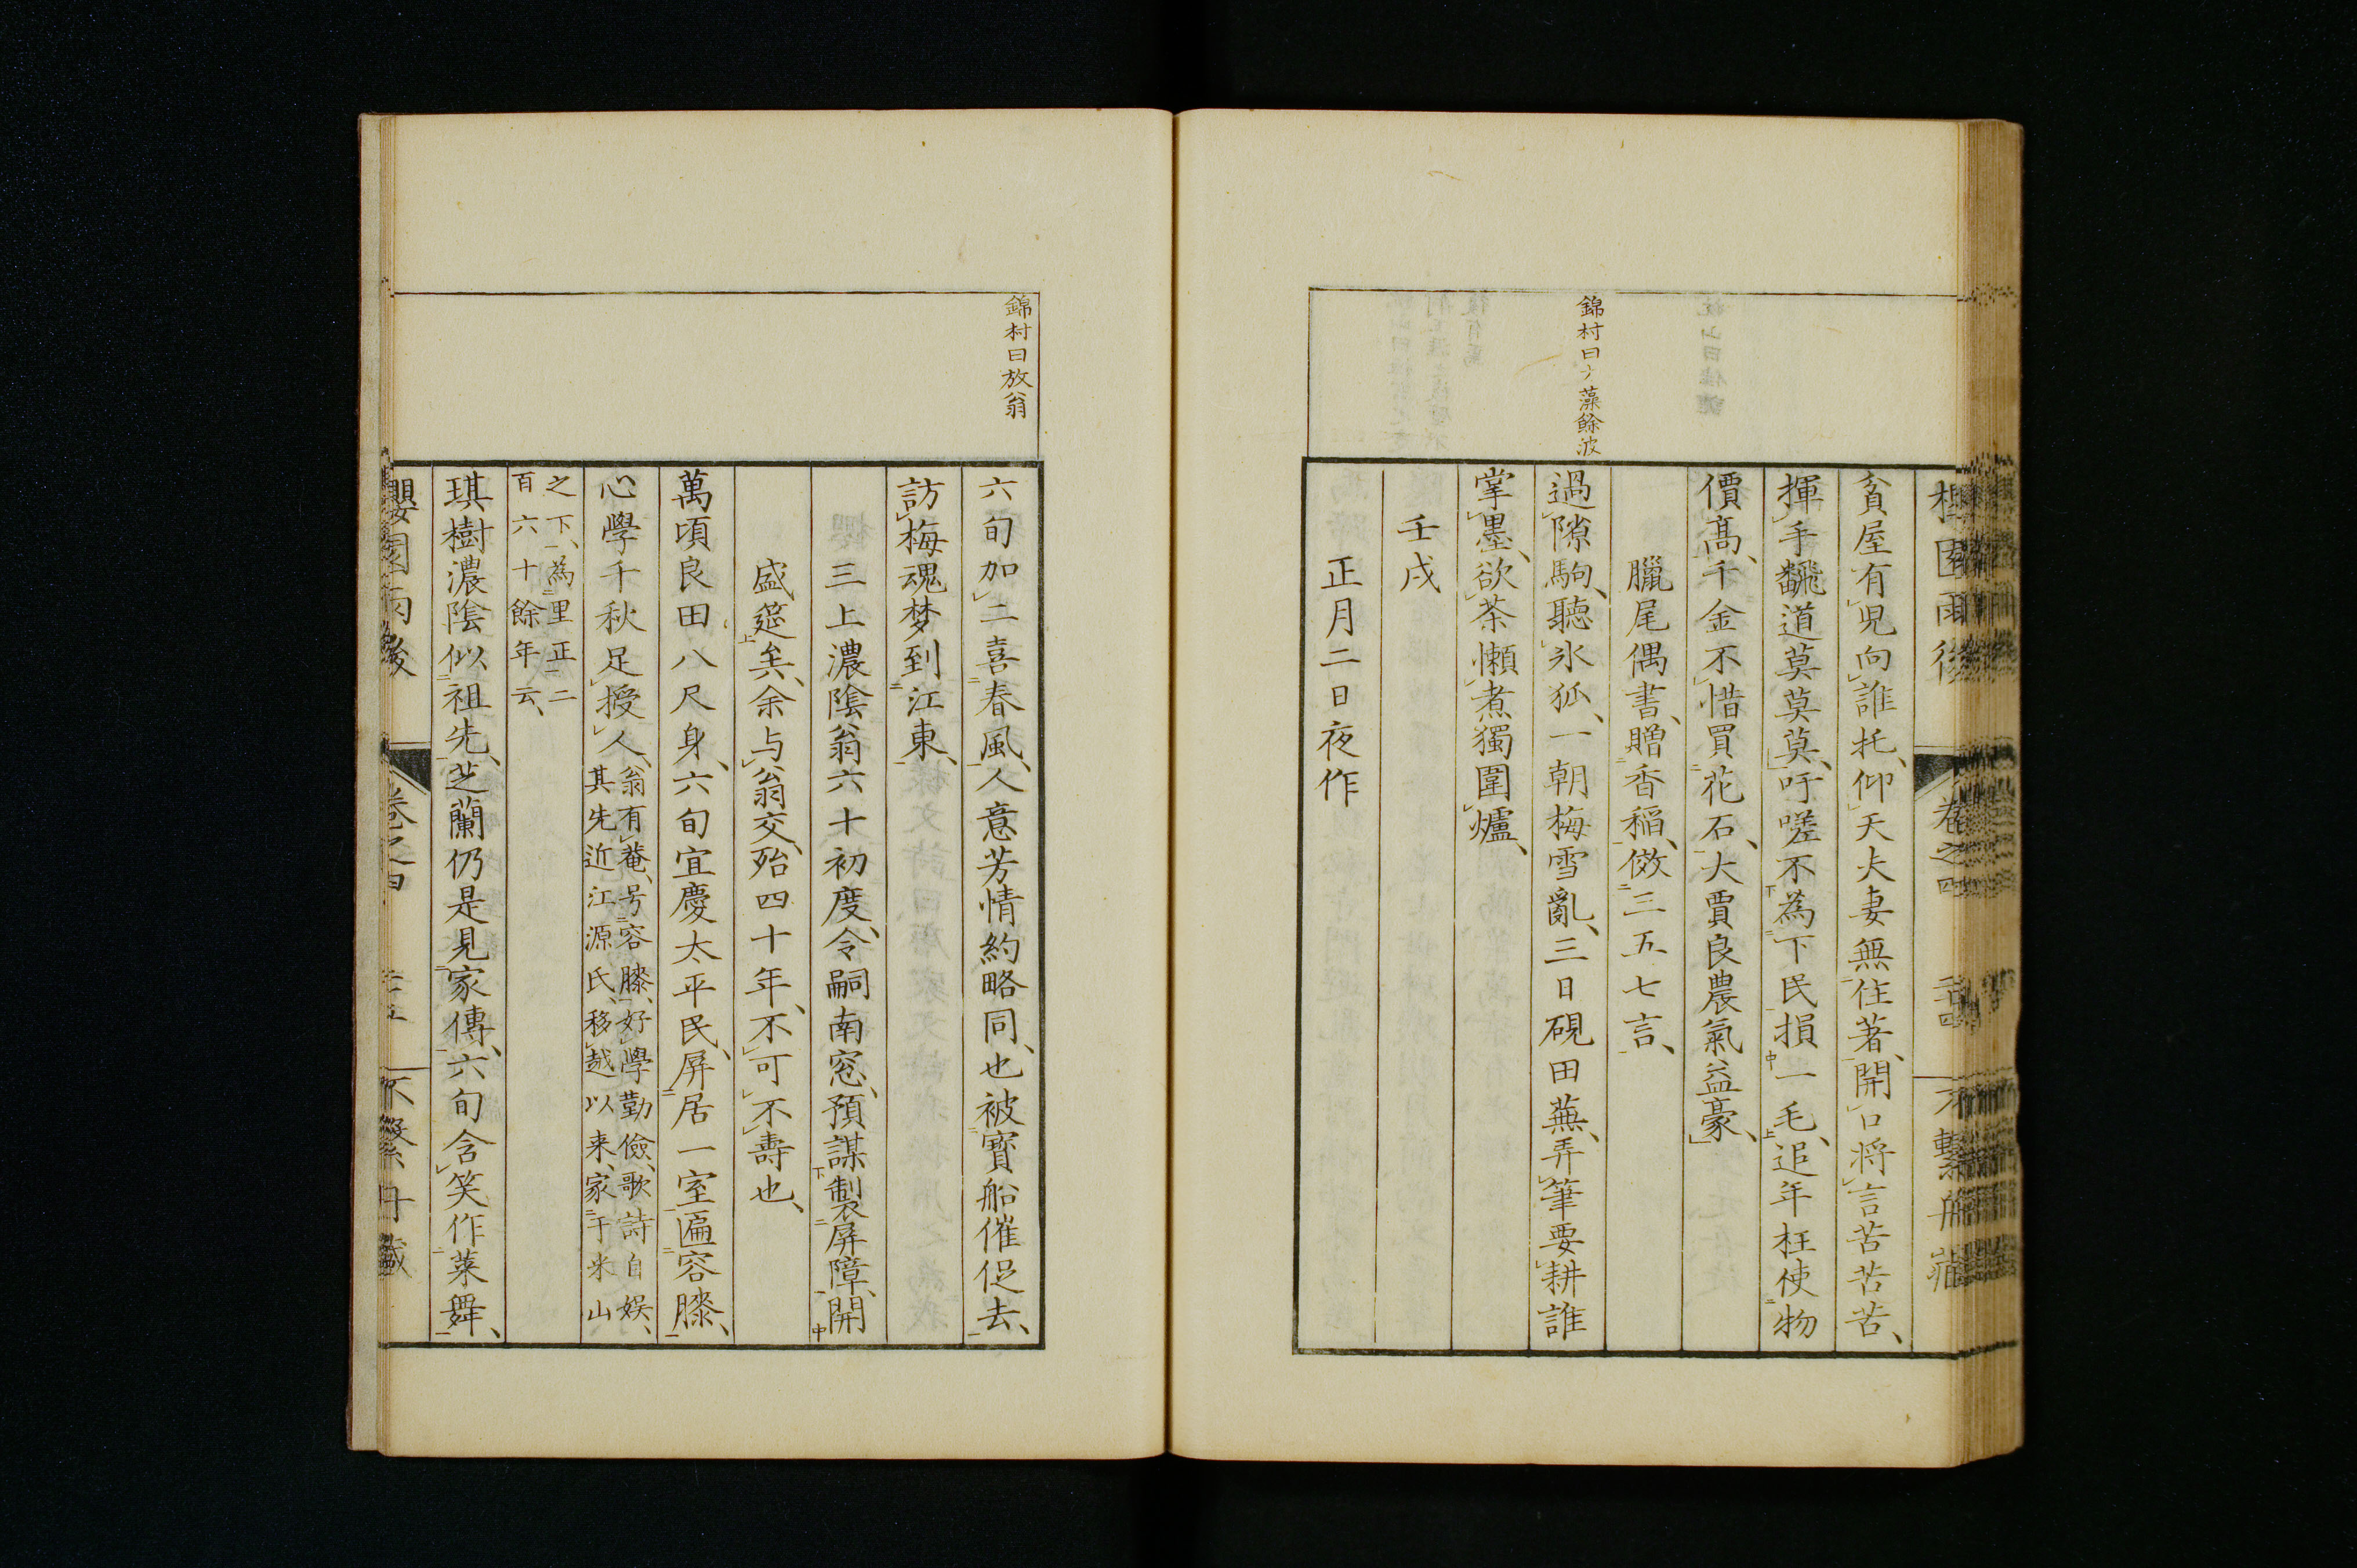 錦村曰ク藻餘波
貧屋有兒向誰托仰天夫妻無住著開口將言苦苦苦
揮手飜道莫莫莫吁嗟不為下民損一毛追年枉使物
價高千金不惜買花石大賈良農氣益豪
臘尾偶書贈香稻傚三五七言
過隙駒聽氷狐一朝梅雪亂三日硯田蕪弄筆要耕誰
掌墨欲茶懶煮獨圍爐
壬戌
正月二日夜作
卷之四
錦村曰放翁
六旬加二喜春風人意芳情約略同也被寳船催促去
訪梅魂梦到江東
三上濃陰翁六十初度令嗣南窓預謀製屏障開
盛筵矣余与翁交殆四十年不可不壽也
萬頃良田八尺身六旬宜慶太平民屏居一室匾容膝
心學千秋足授人翁有菴号容膝好學勤儉歌詩自娯
其先近江源氏移越以来家于米山
之下為里正二
百六十餘年云
琪樹濃陰似祖先芝蘭仍是見家傳六旬含笑作菜舞
櫻園雨後
卷之四
不繋舟藏